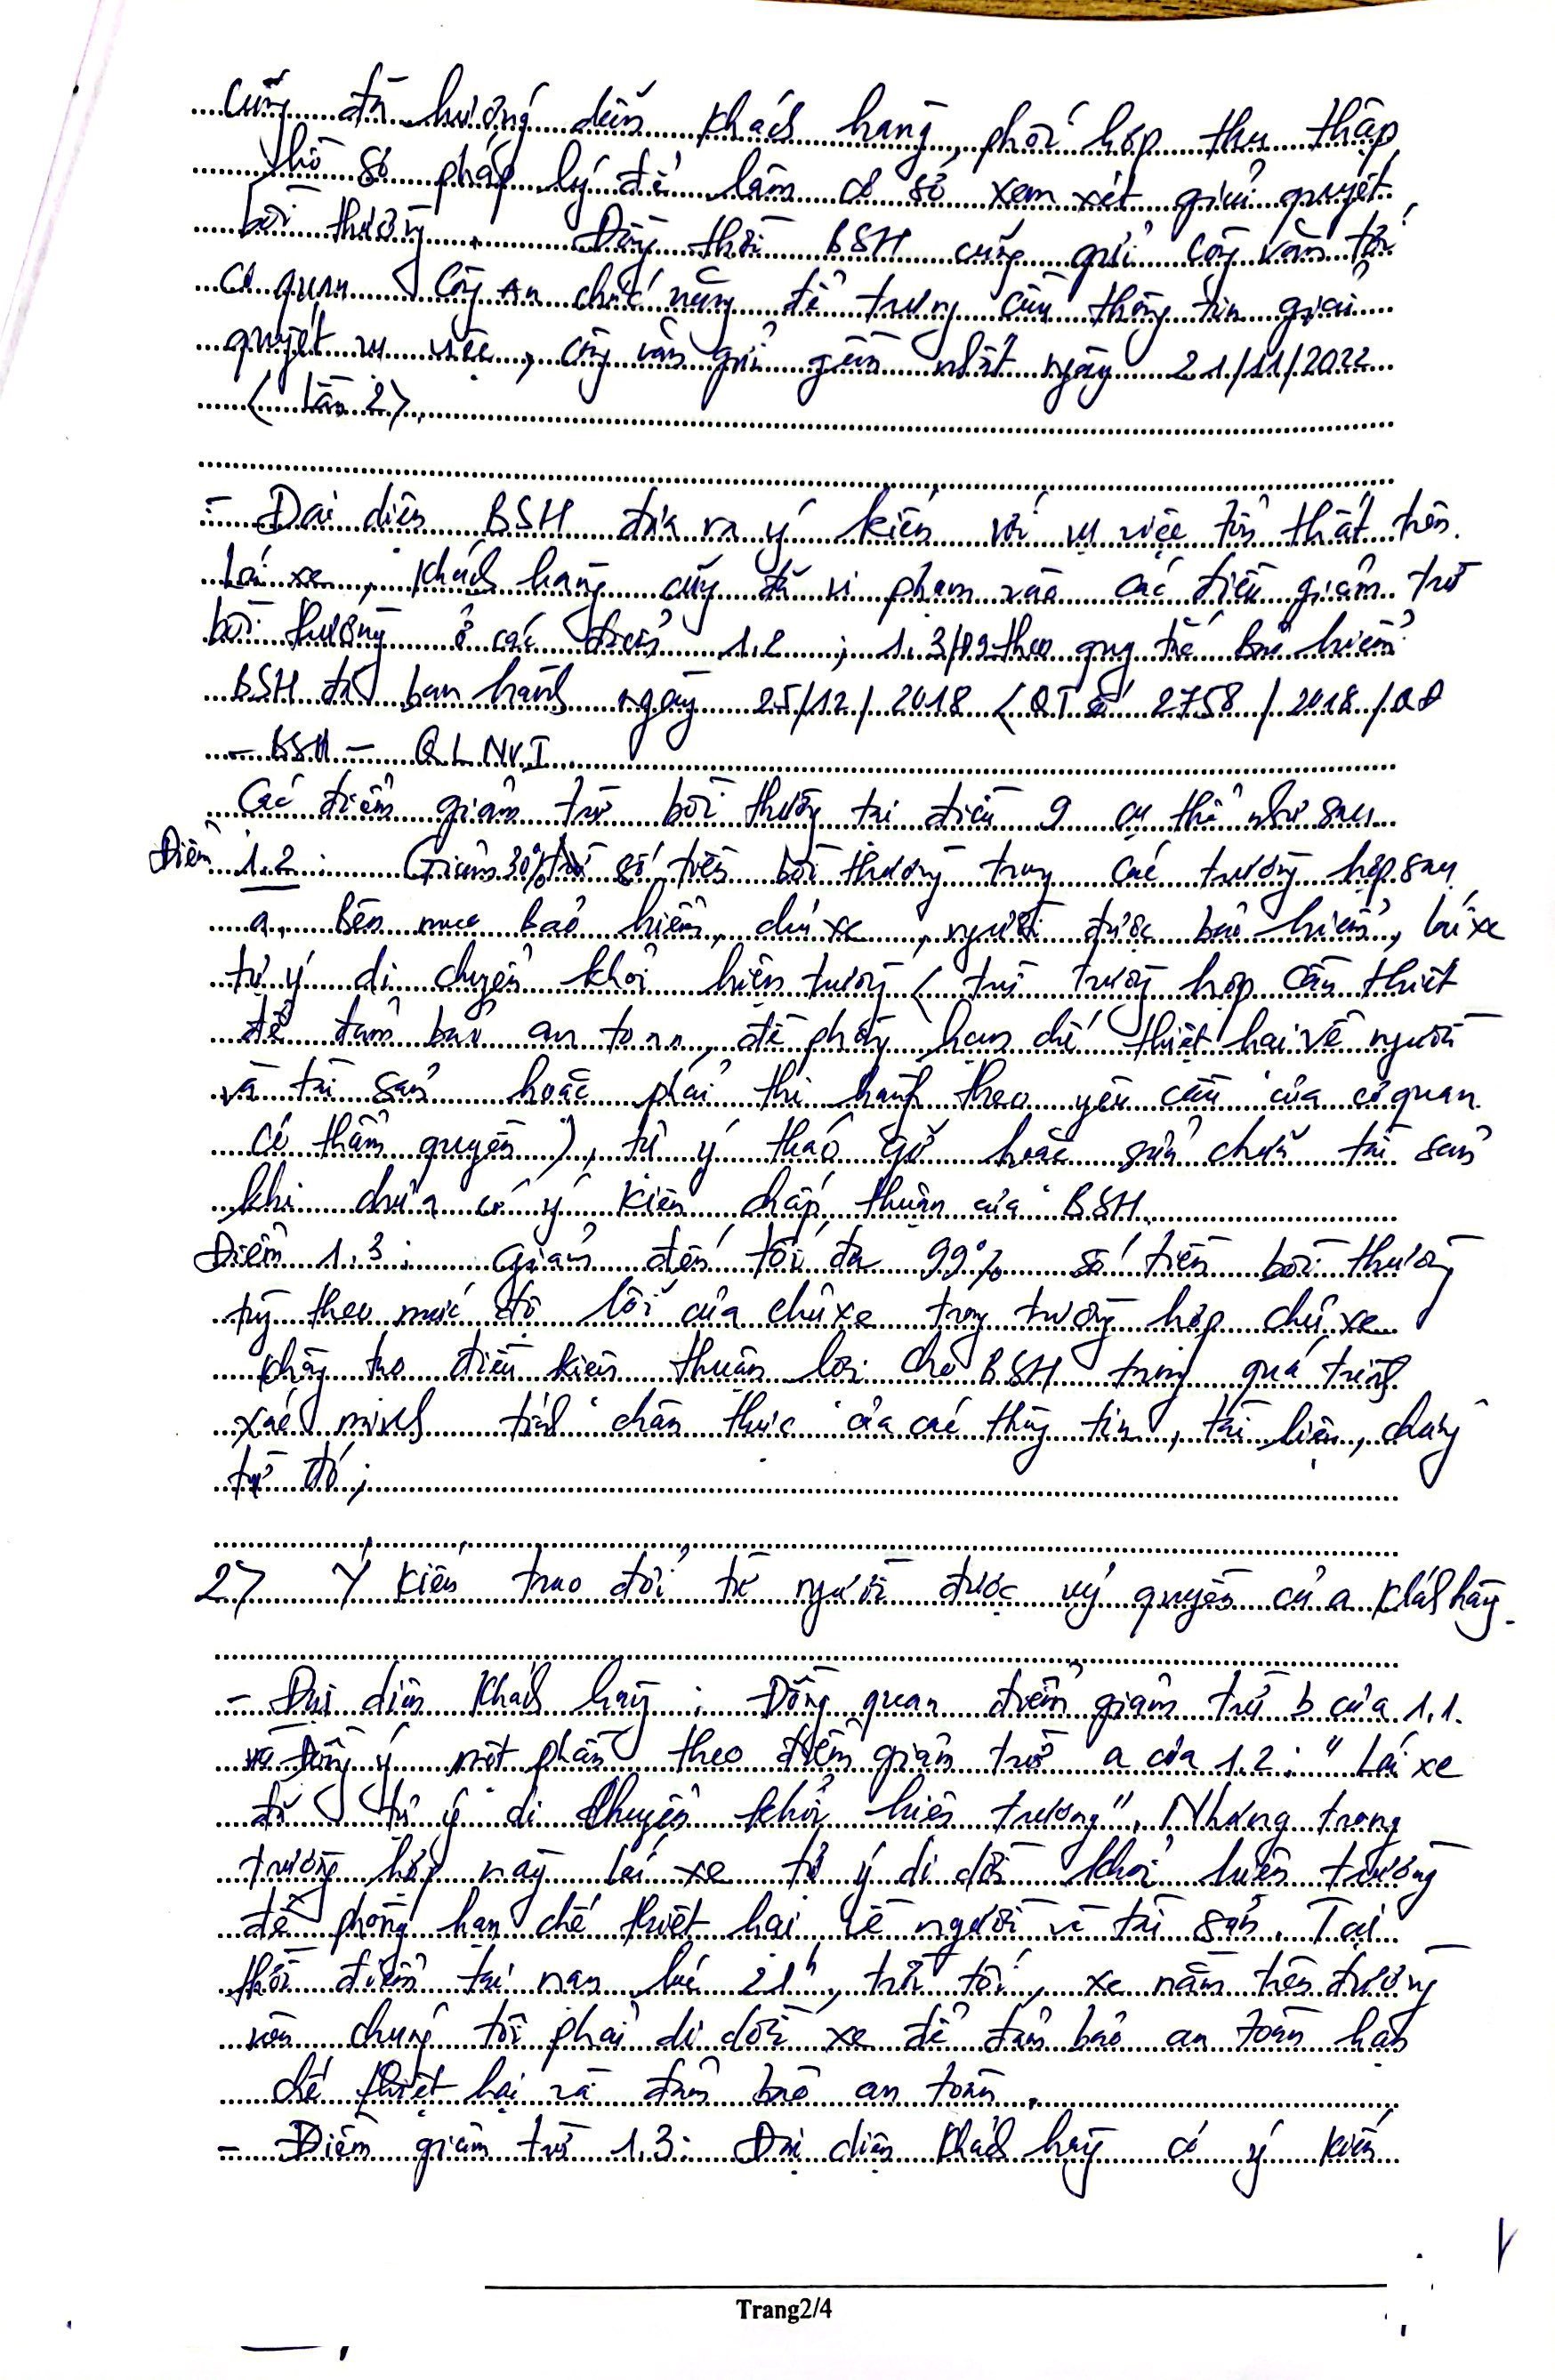 cũng đã hướng dẫn khách hàng, phối hợp thu thập
hồ sơ pháp lý để làm cơ sở xem xét giải quyết
bồi thường. Đồng thời BSH cũng gửi công văn tới
cơ quan Công an chức năng để trưng cầu thông tin giải
quyết vụ việc, công văn gửi gần nhất ngày 21/11/2022
( lần 2).
- Đại diện BSH đưa ra ý kiến với vụ việc tổn thất trên.
Lái xe, khách hàng cũng đã vi phạm vào các điều giảm trừ
bồi thường ở các điểm 1.2 ; 1.3/Đ9 theo quy tắc bảo hiểm
BSH đã ban hành ngày 25/12/2018 (QT số 2758/2018/QĐ
- BSH - QLNV.I
Các điểm giảm trừ bồi thường tại điều 9 cụ thể như sau
Điểm 1.2 : Giảm 30% số tiền bồi thường trong các trường hợp sau
a, Bên mua bảo hiểm, chủ xe, người được bảo hiểm, lái xe
tự ý di chuyển khỏi hiện trường ( trừ trường hợp cần thiết
để đảm bảo an toàn, đề phòng hạn chế thiệt hại về người
và tài sản hoặc phải thi hành theo yêu cầu của cơ quan
có thẩm quyền ), tự ý tháo gỡ hoặc sửa chữa tài sản
khi chưa có ý kiến chấp thuận của BSH.
Điểm 1.3 : Giảm đến tối đa 99% số tiền bồi thường
tùy theo mức độ lỗi của chủ xe trong trường hợp chủ xe
không tạo điều kiện thuận lợi cho BSH trong quá trình
xác minh tính chân thực của các thông tin, tài liệu, chứng
từ đó;
2) Ý kiến trao đổi từ người được uỷ quyền của khách hàng.
- Đại diện khách hàng : Đồng quan điểm giảm trừ b của 1.1.
và Đồng ý một phần theo điểm giảm trừ a của 1.2 : " Lái xe
đã tự ý di chuyển khỏi hiện trường". Nhưng trong
trường hợp này lái xe tự ý di dời khỏi hiện trường
để phòng hạn chế thiệt hại về người và tài sản. Tại
thời điểm tai nạn lúc 21h, trời tối, xe nằm trên đường
nên chúng tôi phải di dời xe để đảm bảo an toàn hạn
chế thiệt hại và đảm bảo an toàn.
- Điểm giảm trừ 1.3 : Đại diện khách hàng có ý kiến
Trang2/4